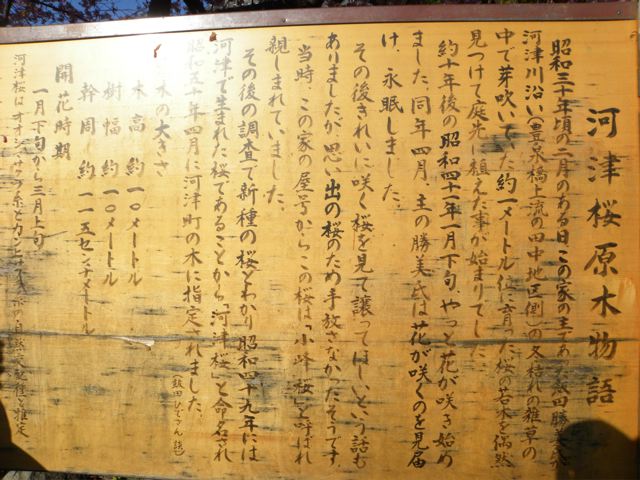 河津桜原木物語
昭和三十年頃の二月のある日この家の主である飯田勝美氏が
河津川沿い(豊泉橋上流の田中地区側)の冬枯れの雑草の
中で芽吹いていた約一メートル位に育った桜の苗木を偶然
見つけて庭先に植えた事が始まりでした
約十年後の昭和四十一年一月下旬、やっと花が咲き始め
ました。同年四月、主の勝美氏は花が咲くのを見届
け、永眠しました。
その後きれいに咲く桜を見て譲ってほしいという話も
ありましたが思い出の桜のため手放さなかったそうです。
当時、この家の屋号からこの桜は「小峰桜」と呼ばれ
親しまれていました。
その後の調査で新種の桜とわかり昭和四十九年には
河津で生まれた桜であることから「河津桜」と命名され
昭和五十年四月に河津町の木に指定されました。
飯田ひでさん談
木の大きさ
木高 約 一〇メートル
樹幅 約 一〇メートル
幹周 約 一一五センチメートル
開花時期
一月下旬から三月上旬
河津桜はオオシマザクラ系とカンヒザクラ系の自然交配種と推定